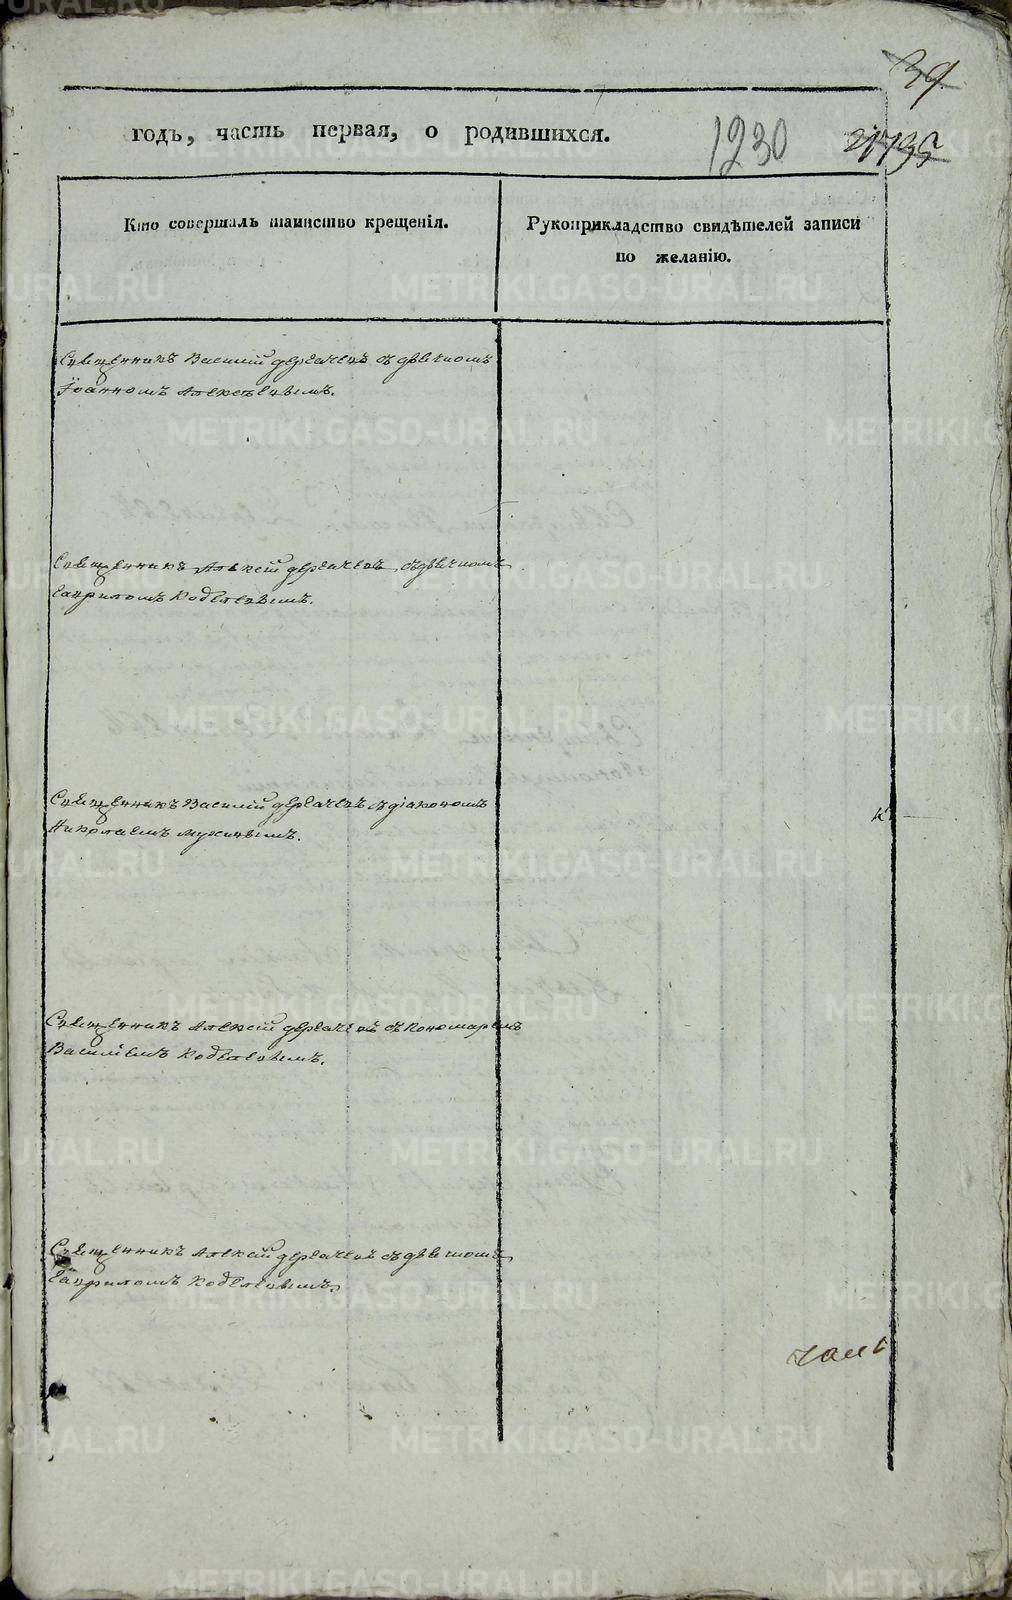 39
годъ, часть первая, о родившихся.
1230
Кто совершалъ таинство крещенія.
Рукоприкладство свидѣтелей записи
по желанію.
Священникъ Василій Дергачевъ съ дьячкомъ
Іоанномъ Алексѣевымъ.
Священникъ Алексій Дергачевъ, съ дьячкомъ
Гавриломъ Кобелевымъ.
Священникъ Василій Дергачевъ съ діакономъ
Николаемъ Мухинымъ.
Священникъ Алексій Дергачевъ съ пономаремъ
Василіемъ Кобелевымъ.
Священникъ Алексій Дергачевъ съ дьячкомъ
Гавриломъ Кобелевымъ.
METRIKI.GASO-URAL.RU